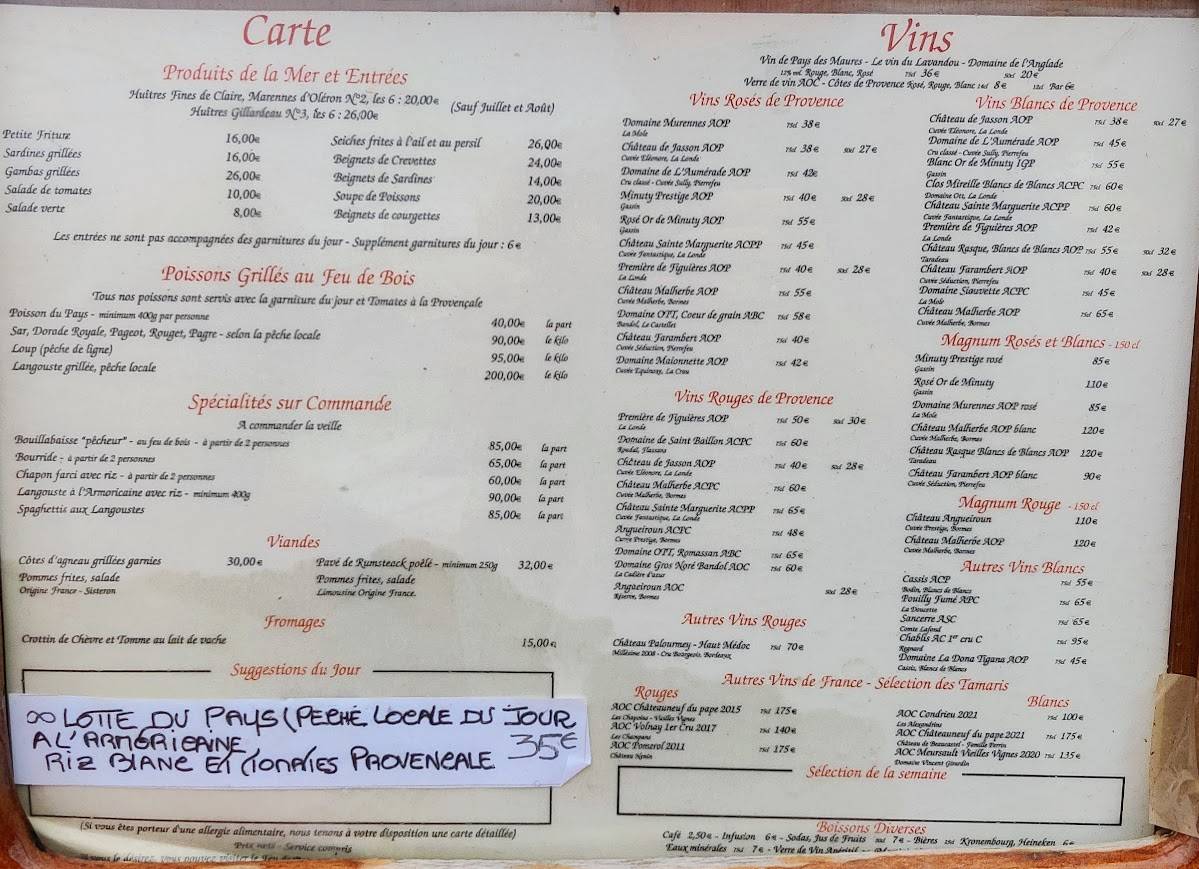 Carte
Produits de la Mer et Entrées
Huîtres Fines de Claire, Marennes d'Oléron N°2, les 6 : 20,00€ (Sauf Juillet et Août)
Huîtres Gillardeau N°3, les 6 : 26,00€
Petite Friture 16,00€
Sardines grillées 16,00€
Gambas grillées 26,00€
Salade de tomates 10,00€
Salade verte 8,00€
Seiches frites à l'ail et au persil 26,00€
Beignets de Crevettes 24,00€
Beignets de Sardines 14,00€
Soupe de Poissons 20,00€
Beignets de courgettes 13,00€
Les entrées ne sont pas accompagnées des garnitures du jour - Supplément garnitures du jour : 6€
Poissons Grillés au Feu de Bois
Tous nos poissons sont servis avec la garniture du jour et Tomates à la Provençale
Poisson du Pays - minimum 400g par personne 40,00€ la part
Sar, Dorade Royale, Pageot, Rouget, Pagre - selon la pêche locale 90,00€ le kilo
Loup (pêche de ligne) 95,00€ le kilo
Langouste grillée, pêche locale 200,00€ le kilo
Spécialités sur Commande
A commander la veille
Bouillabaisse "pêcheur" - au feu de bois - à partir de 2 personnes 85,00€ la part
Bourride - à partir de 2 personnes 65,00€ la part
Chapon farci avec riz - à partir de 2 personnes 60,00€ la part
Langouste à l'Armoricaine avec riz - minimum 400g 90,00€ la part
Spaghettis aux Langoustes 85,00€ la part
Viandes
Côtes d'agneau grillées garnies 30,00€
Pommes frites, salade
Origine France - Sisteron
Pavé de Rumsteack poêlé - minimum 250g 32,00€
Pommes frites, salade
Limousine Origine France.
Fromages
Crottin de Chèvre et Tomme au lait de vache 15,00€
Suggestions du Jour
LOTTE DU PAYS (PECHE LOCALE DU JOUR
A L'ARMORICAINE 35€
RIZ BLANC ET TOMATES PROVENCALE
(Si vous êtes porteur d'une allergie alimentaire, nous tenons à votre disposition une carte détaillée)
Prix nets - Service compris
Vins
Vin de Pays des Maures - Le vin du Lavandou - Domaine de l'Anglade
12% vol. Rouge, Blanc, Rosé 75cl 36€ 50cl 20€
Verre de vin AOC - Côtes de Provence Rosé, Rouge, Blanc 14cl 8€ 12cl Bar 6€
Vins Rosés de Provence
Domaine Murennes AOP 75cl 38€
La Mole
Château de Jasson AOP 75cl 38€ 50cl 27€
Cuvée Eléonore, La Londe
Domaine de L'Aumérade AOP 75cl 42€
Cru classé - Cuvée Sully, Pierrefeu
Minuty Prestige AOP 75cl 40€ 50cl 28€
Gassin
Rosé Or de Minuty AOP 75cl 55€
Gassin
Château Sainte Marguerite ACPP 75cl 45€
Cuvée Fantastique, La Londe
Première de Figuières AOP 75cl 40€ 50cl 28€
La Londe
Château Malherbe AOP 75cl 55€
Cuvée Malherbe, Bormes
Domaine OTT, Coeur de grain ABC 75cl 58€
Bandol, Le Castellet
Château Farambert AOP 75cl 40€
Cuvée Séduction, Pierrefeu
Domaine Maionnette AOP 75cl 42€
Cuvée Equinoxy, La Crau
Vins Rouges de Provence
Première de Figuières AOP 75cl 50€ 50cl 30€
La Londe
Domaine de Saint Baillon ACPC 75cl 60€
Roudaï, Flassans
Château de Jasson AOP 75cl 40€ 50cl 28€
Cuvée Eléonore, La Londe
Château Malherbe ACPC 75cl 60€
Cuvée Malherbe, Bormes
Château Sainte Marguerite ACPP 75cl 65€
Cuvée Fantastique, La Londe
Angueiroun ACPC 75cl 48€
Cuvée Prestige, Bormes
Domaine OTT, Romassan ABC 75cl 65€
Domaine Gros Noré Bandol AOC 75cl 60€
La Cadière d'azur
Angueiroun AOC 50cl 28€
Réserve, Bormes
Autres Vins Rouges
Château Palourmey - Haut Médoc 75cl 70€
Millésime 2008 - Cru Bourgeois, Bordeaux
Vins Blancs de Provence
Château de Jasson AOP 75cl 38€ 50cl 27€
Cuvée Eléonore, La Londe
Domaine de L'Aumérade AOP 75cl 45€
Cru classé - Cuvée Sully, Pierrefeu
Blanc Or de Minuty IGP 75cl 55€
Gassin
Clos Mireille Blancs de Blancs ACPC 75cl 60€
Domaine Ott, La Londe
Château Sainte Marguerite ACPP 75cl 60€
Cuvée Fantastique, La Londe
Première de Figuières AOP 75cl 42€
La Londe
Château Rasque, Blancs de Blancs AOP 75cl 55€ 50cl 32€
Taradeau
Château Farambert AOP 75cl 40€ 50cl 28€
Cuvée Séduction, Pierrefeu
Domaine Siouvette ACPC 75cl 45€
La Mole
Château Malherbe AOP 75cl 65€
Cuvée Malherbe, Bormes
Magnum Rosés et Blancs - 150 cl
Minuty Prestige rosé 85€
Gassin
Rosé Or de Minuty 110€
Gassin
Domaine Murennes AOP rosé 85€
La Mole
Château Malherbe AOP blanc 120€
Cuvée Malherbe, Bormes
Château Rasque Blancs de Blancs AOP 120€
Taradeau
Château Farambert AOP blanc 90€
Cuvée Séduction, Pierrefeu
Magnum Rouge - 150 cl
Château Angueiroun 110€
Cuvée Prestige, Bormes
Château Malherbe AOP 120€
Cuvée Malherbe, Bormes
Autres Vins Blancs
Cassis ACP 75cl 55€
Bodin, Blancs de Blancs
Pouilly Fumé APC 75cl 65€
La Doucette
Sancerre ASC 75cl 65€
Comte Lafond
Chablis AC 1er cru C 75cl 95€
Regnard
Domaine La Dona Tigana AOP 75cl 45€
Cassis, Blancs de Blancs
Autres Vins de France - Sélection des Tamaris
Rouges
AOC Châteauneuf du pape 2015 75cl 175€
Les Chapoins - Vieilles Vignes
AOC Volnay 1er Cru 2017 75cl 140€
Les Chanpans
AOC Pomerol 2011 75cl 175€
Château Nénin
Blancs
AOC Condrieu 2021 75cl 100€
Les Alexandrins
AOC Châteauneuf du pape 2021 75cl 175€
Château de Beaucastel - Famille Perrin
AOC Meursault Vieilles Vignes 2020 75cl 135€
Domaine Vincent Girardin
Sélection de la semaine
Boissons Diverses
Café 2,50€ - Infusion 6€ - Sodas, Jus de Fruits 7€ - Bières 25cl Kronembourg, Heineken 6€
Eaux minérales 75cl 7€ - Verre de Vin Apéritif